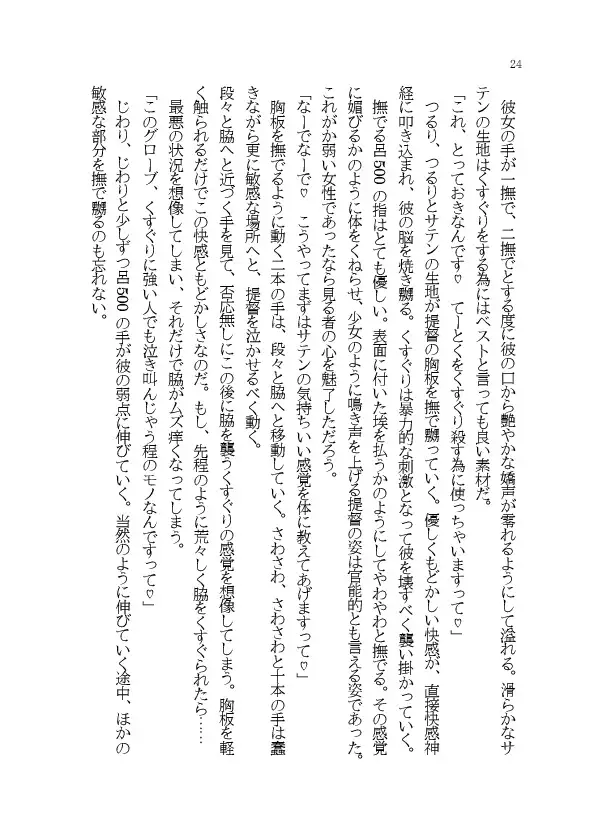 24
　彼女の手が一撫で、二撫でとする度に彼の口から艶やかな嬌声が零れるようにして溢れる。滑らかなサ
テンの生地はくすぐりをする為にはベストと言っても良い素材だ。
「これ、とっておきなんです♡　てーとくをくすぐり殺す為に使っちゃいますって♡」
　つるり、つるりとサテンの生地が提督の胸板を撫で嬲っていく。優しくもどかしい快感が、直接快感神
経に叩き込まれ、彼の脳を焼き嬲る。くすぐりは暴力的な刺激となって彼を壊すべく襲い掛かっていく。
　撫でる呂500の指はとても優しい。表面に付いた埃を払うかのようにしてやわやわと撫でる。その感覚
に媚びるかのように体をくねらせ、少女のように鳴き声を上げる提督の姿は官能的とも言える姿であった。
これがか弱い女性であったなら見る者の心を魅了しただろう。
「なーでなーで♡　こうやってまずはサテンの気持ちいい感覚を体に教えてあげますって♡」
　胸板を撫でるように動く二本の手は、段々と脇へと移動していく。さわさわ、さわさわと十本の手は蠢
きながら更に敏感な場所へと、提督を泣かせるべく動く。
段々と脇へと近づく手を見て、否応無しにこの後に脇を襲うくすぐりの感覚を想像してしまう。胸板を軽
く触られるだけでこの快感ともどかしさなのだ。もし、先程のように荒々しく脇をくすぐられたら……
　最悪の状況を想像してしまい、それだけで脇がムズ痒くなってしまう。
「このグローブ、くすぐりに強い人でも泣き叫んじゃう程のモノなんですって♡」
　じわり、じわりと少しずつ呂500の手が彼の弱点に伸びていく。当然のように伸びていく途中、ほかの
敏感な部分を撫で嬲るのも忘れない。